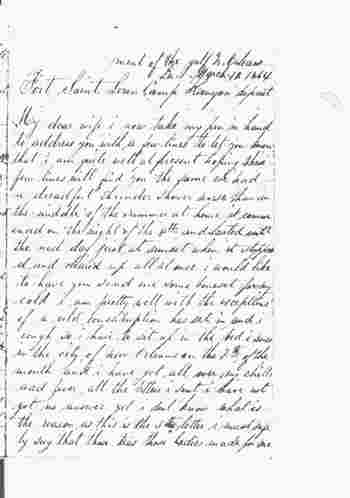 ment of the gulf N Orleans
La March 12 1864
Fort Saint Camp deposit
My dear wife i now take my pen in hand
to address you with a few lines to let you know
that i am quite well at present hoping these
few lines will find you the same we had
a dreadful thunder shower worse than in
the middle of the summer at home it comm
enced on the night of the 10th and lasted until
the next day just at sunset when it stopped
and cleared up all at once i would like
to have you send me some for my
cold i am pretty well with the exceptions
of a cold consumption has set in and i
cough so i have to set up in the bed i was
in the city of new Orleans on the 8th of the
month and i have got all over my chills
and fever all the letters i sent i have not
got no answer yet i dont know what is
the reason as this is the letter i must say
by say that those made for me